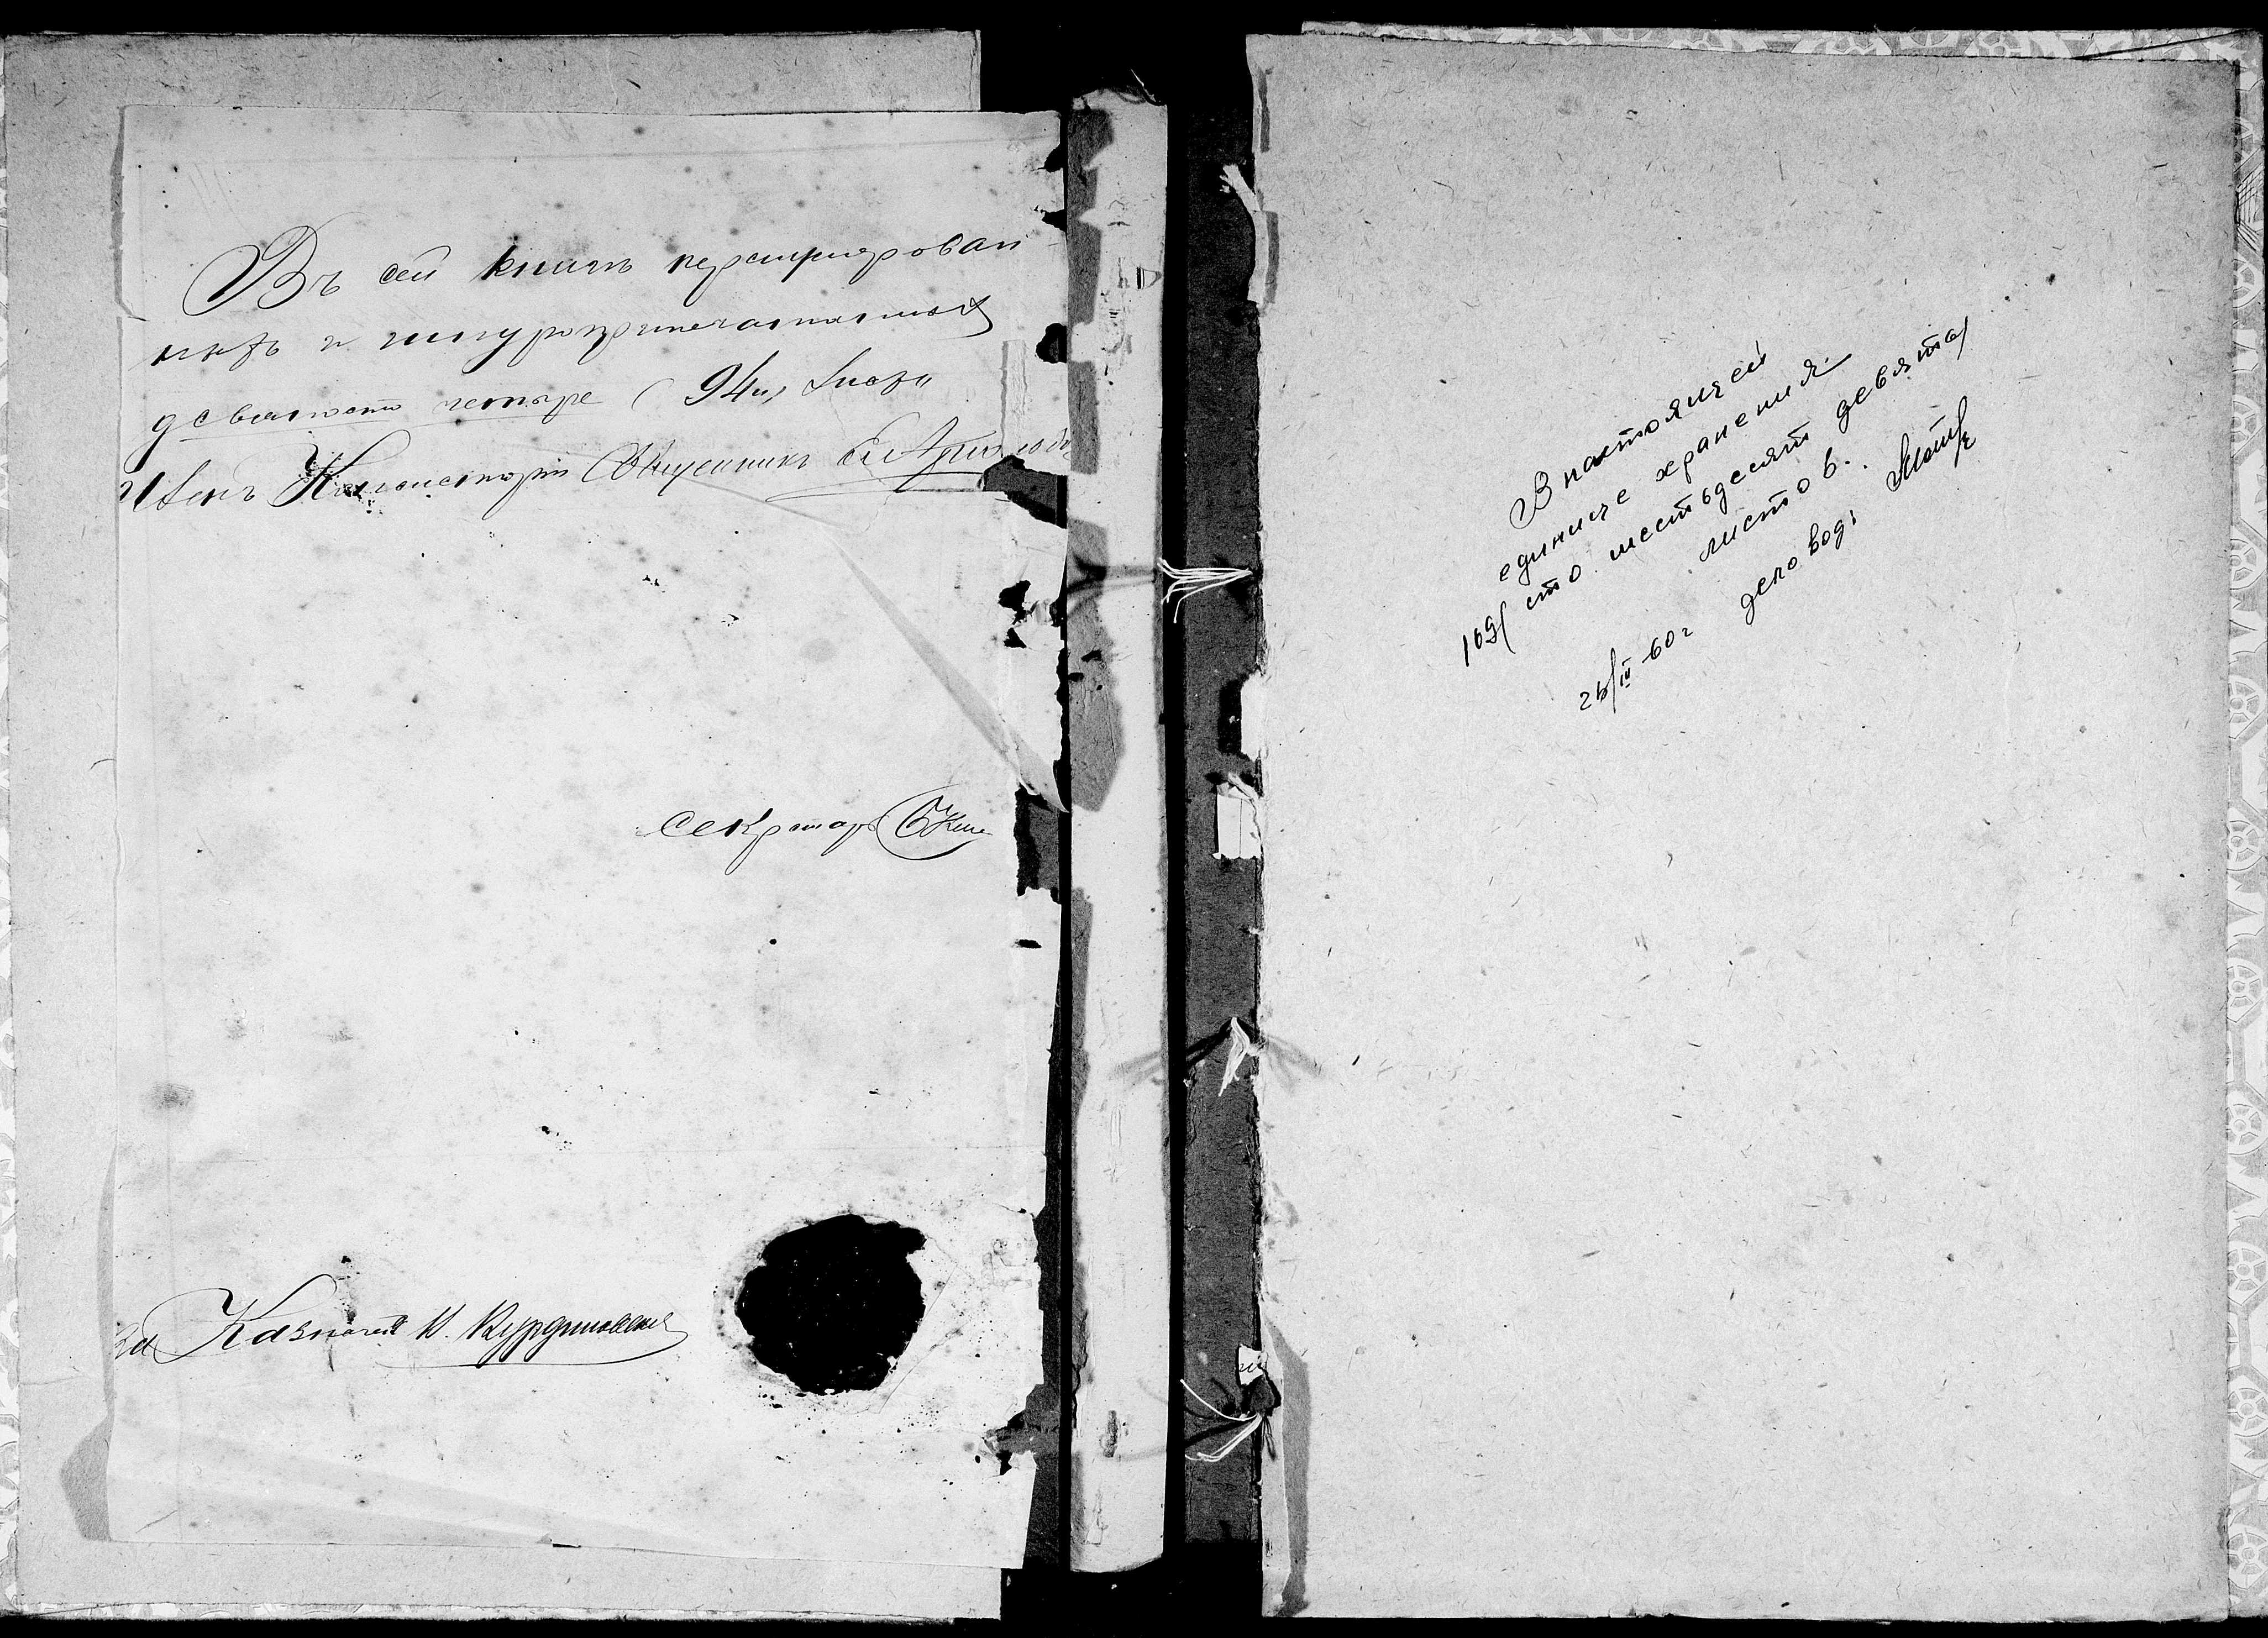 Въ сей книгѣ нумерирован
ныхъ и шнуроприпечатанныхъ
девяносто четыре (94) листа
Членъ Консисторіи Священникъ
Секретарь
За Казначея К. Курдиновскій
В настоящей
единице хранения
169 (сто шестьдесят девять)
листов.
26/IV-60 г деловод: